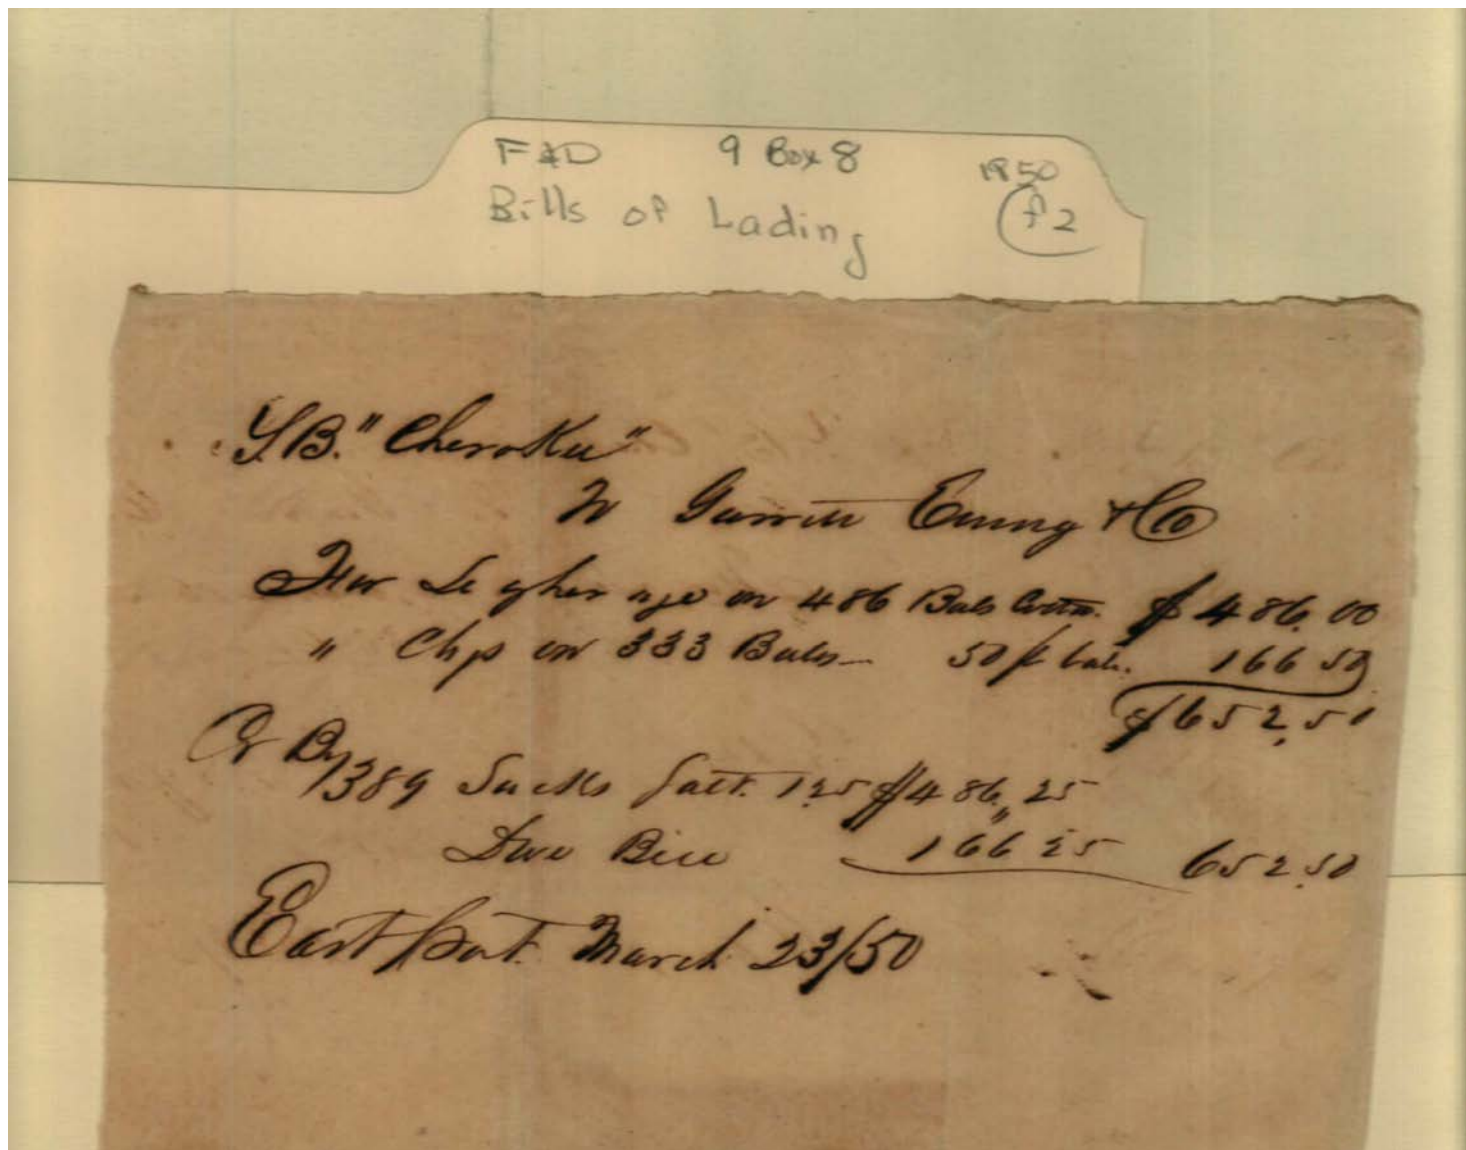 F&D 9 Box 8 1850
Bills of Lading f2
S.B. "Cherokee"
Garrett &Co
For Leigherage on 486 Bals Cotton. $486.00
" Chgs on 333 Bales 50 p bale. 166 50
$652.50
Cr By
389 Sacks Salt. 1.25 $486,25
Due Bill 166 25 652.50
Eastport. March 23/50